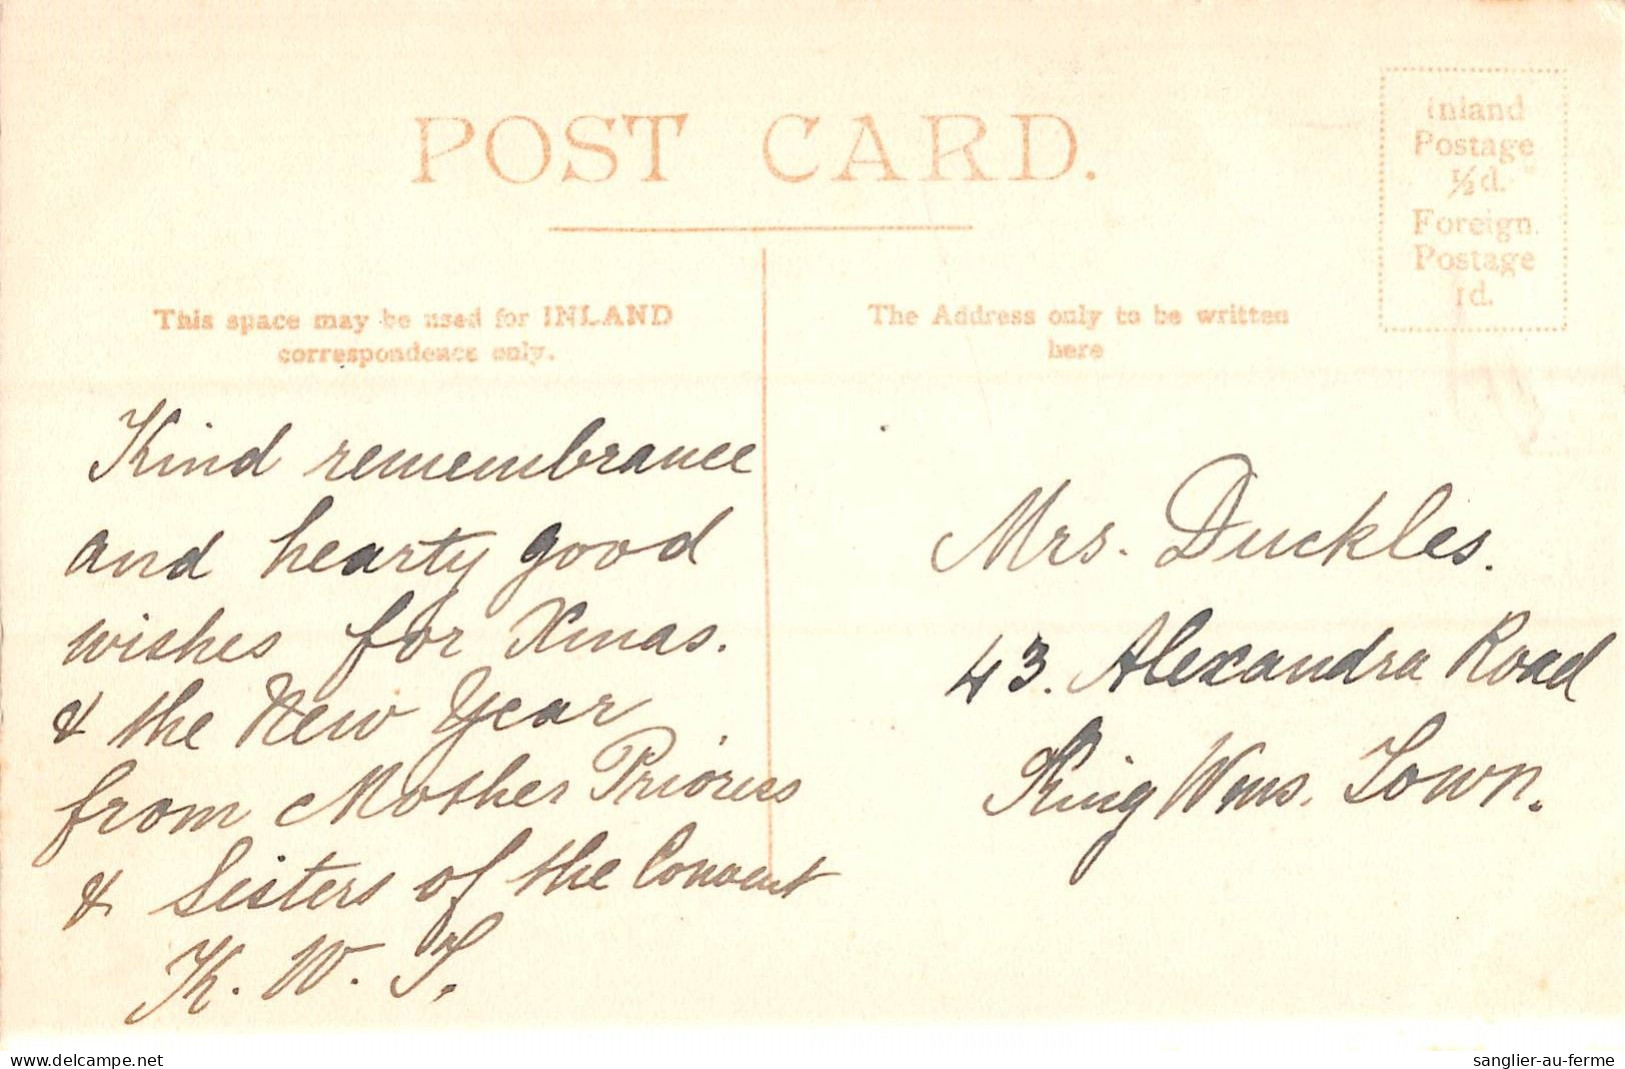 POST CARD.
Inland
Postage
½d.
Foreign
Postage
1d.
This space may be used for INLAND
correspondence only.
The Address only to be written
here
Kind remembrance
and hearty good
wishes for Xmas.
& the New Year
from Mother Prioress
& Sisters of the Convent
K. W. T.
Mrs. Duckles.
43. Alexandra Road
King Wms. Town.
www.delcampe.net
sanglier-au-ferme